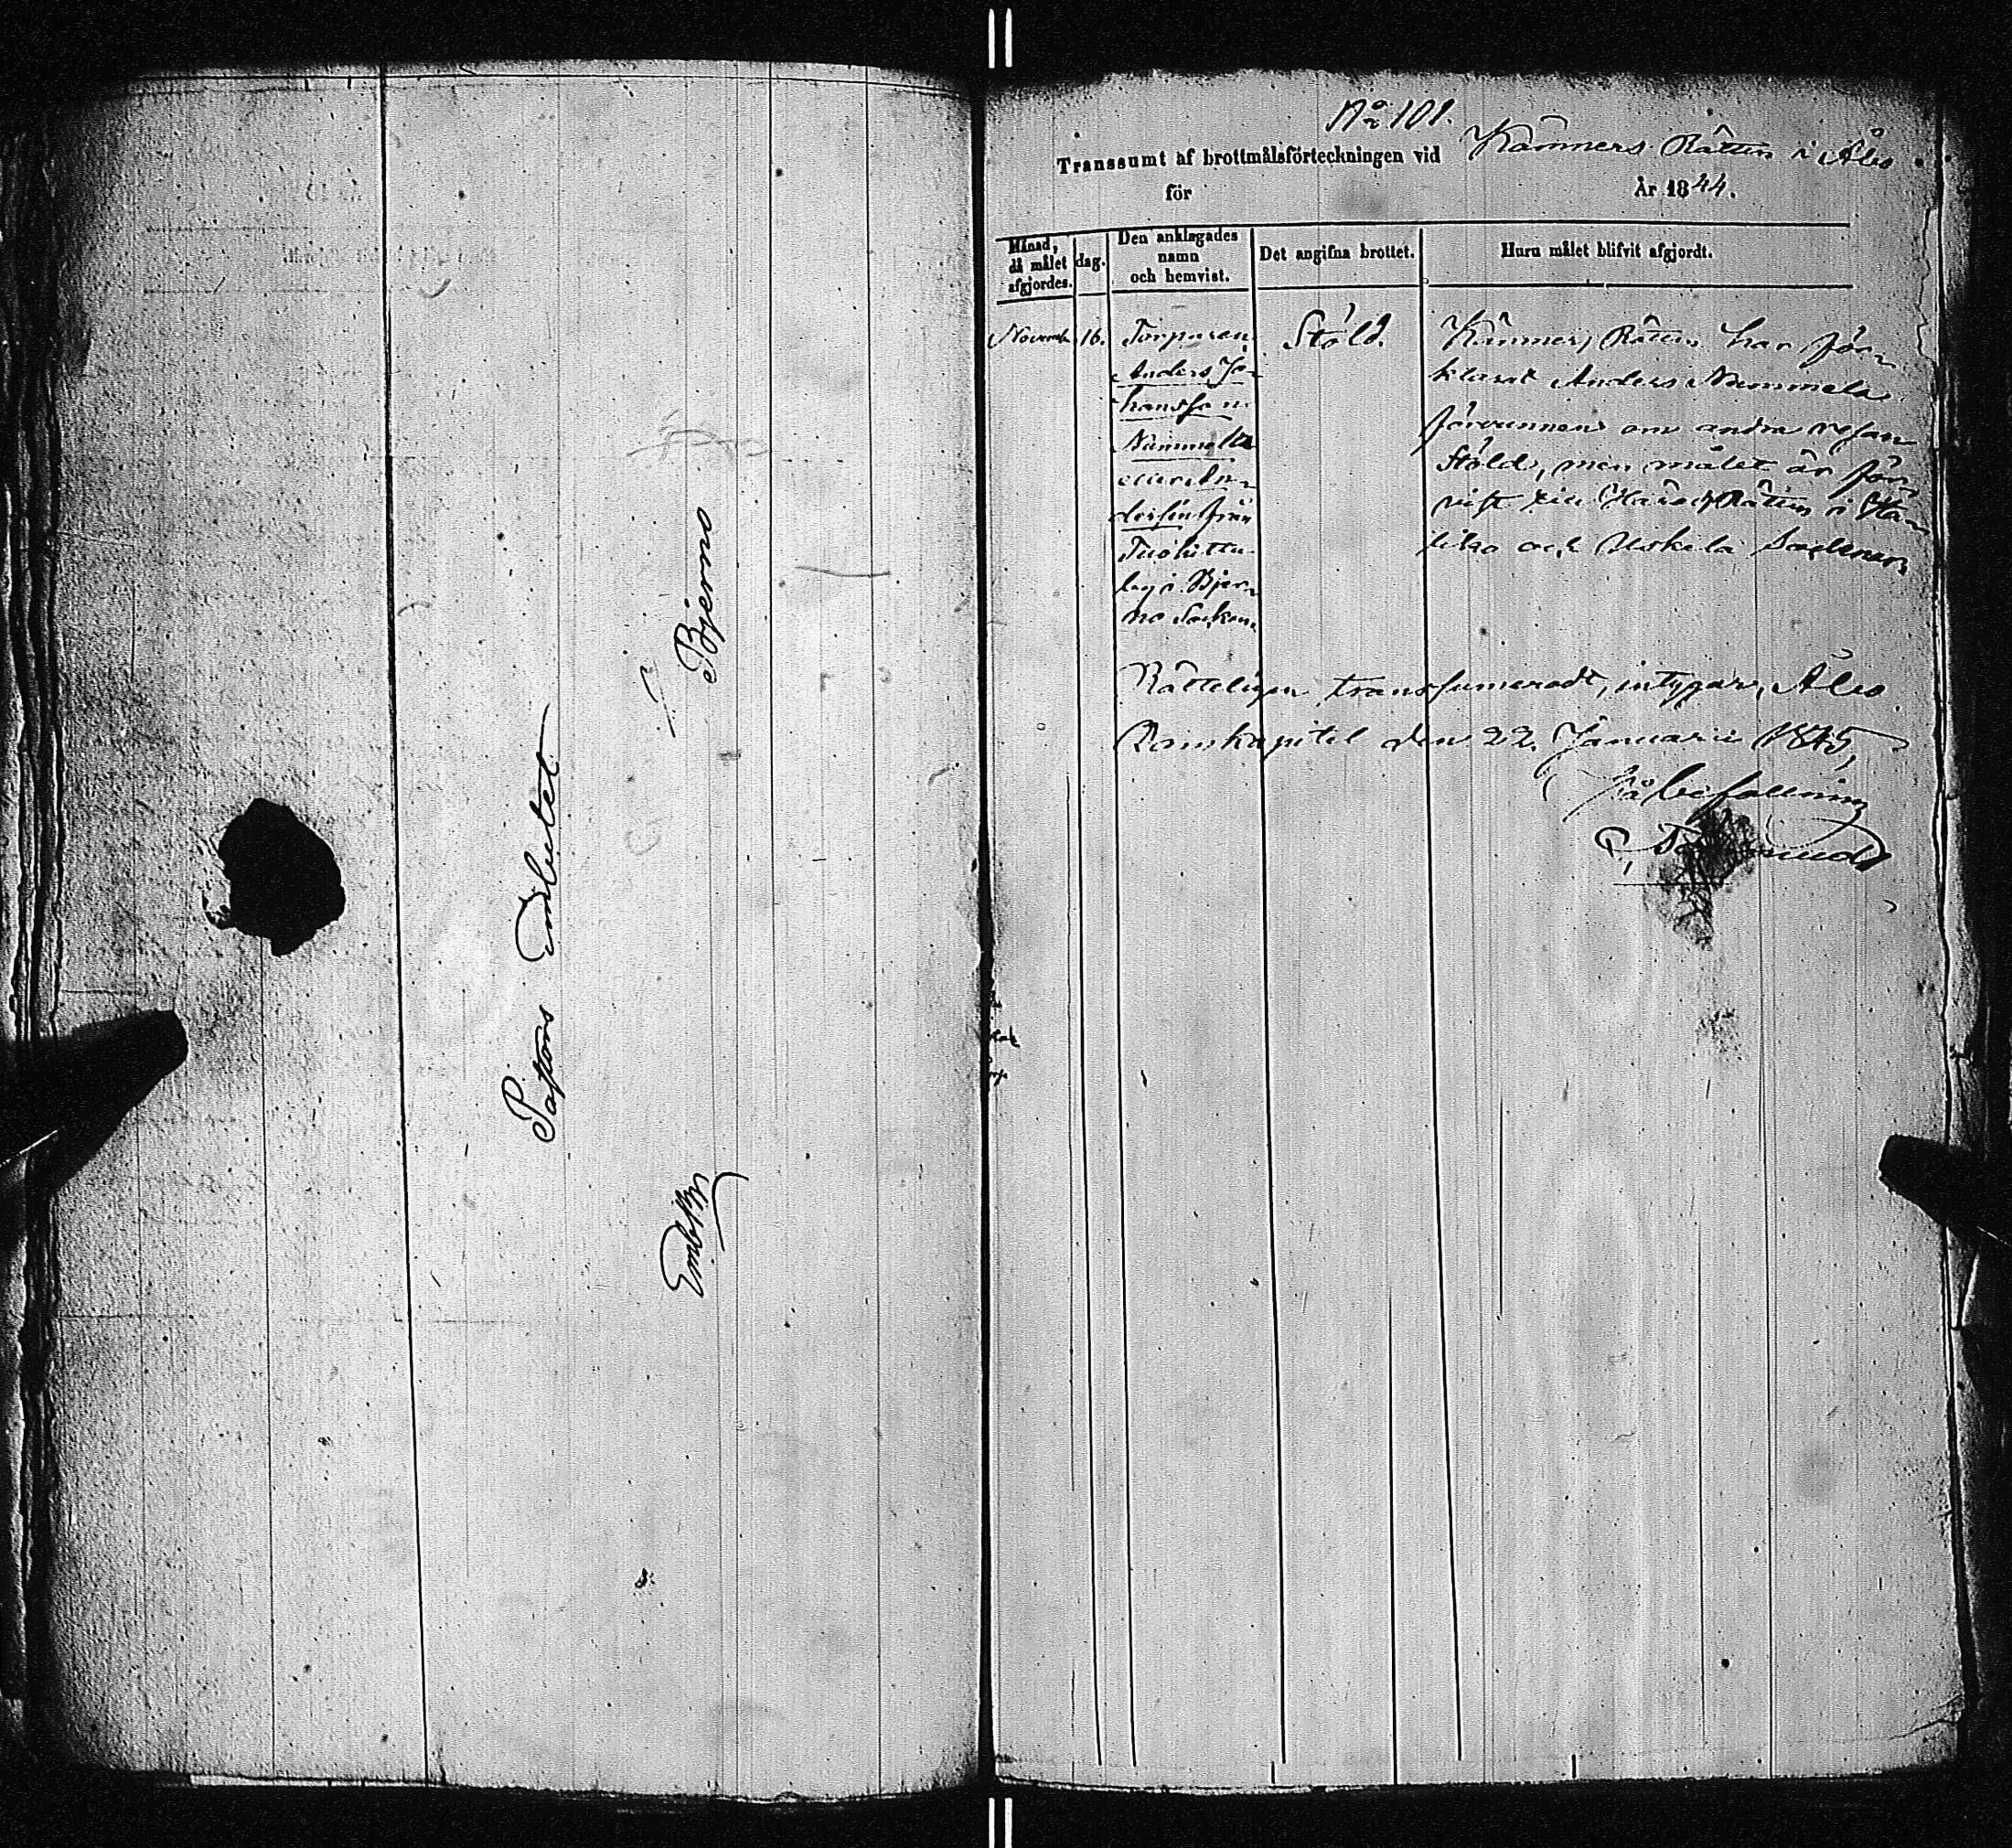 Pastors Embetet
i
Bjerno
EmbtBr
No 101.
Transsumt af brottmålsförteckningen vid Kämners Rätten i Åbo
för År 1844.
Månad, då målet afgjordes.
dag.
Den anklagades namn och hemvist.
Det angifna brottet.
Huru målet blifvit afgjordt.
Novemb.
16.
Torparen
Anders Jo-
hansson
Nummela
eller An-
dersén från
Tuohittu
by i Bjer-
no Socken.
Stöld.
Kämners Rätten har för-
klarat Anders Nummela
förvunnen om andra resan
Stöld, men målet är för-
vist till Härads Rätten i Ha-
liko och Uskela Socknar
Rätteligen transsumeradt, intygar, Åbo
Domkapitel den 22. Januarii 1845,
På befallning